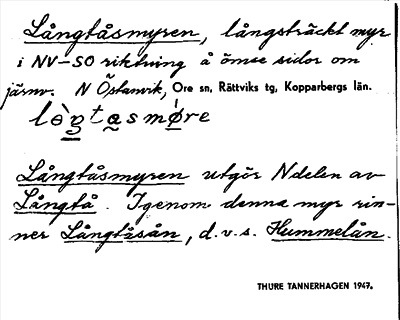 Långtåsmyren, långsträckt myr
i NV-SO riktning å ömse sidor om
järnv. N Östanvik, Ore sn, Rättviks tg, Kopparbergs län.
Långtåsmyren utgör Ndelen av
Långtå. Igenom denna myr rin-
ner Långtåsån, d.v.s. Hummelån.
THURE TANNERHAGEN 1947.